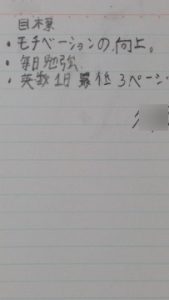 目標
・モチベーションの向上。
・毎日勉強
・英数1日最低3ページ